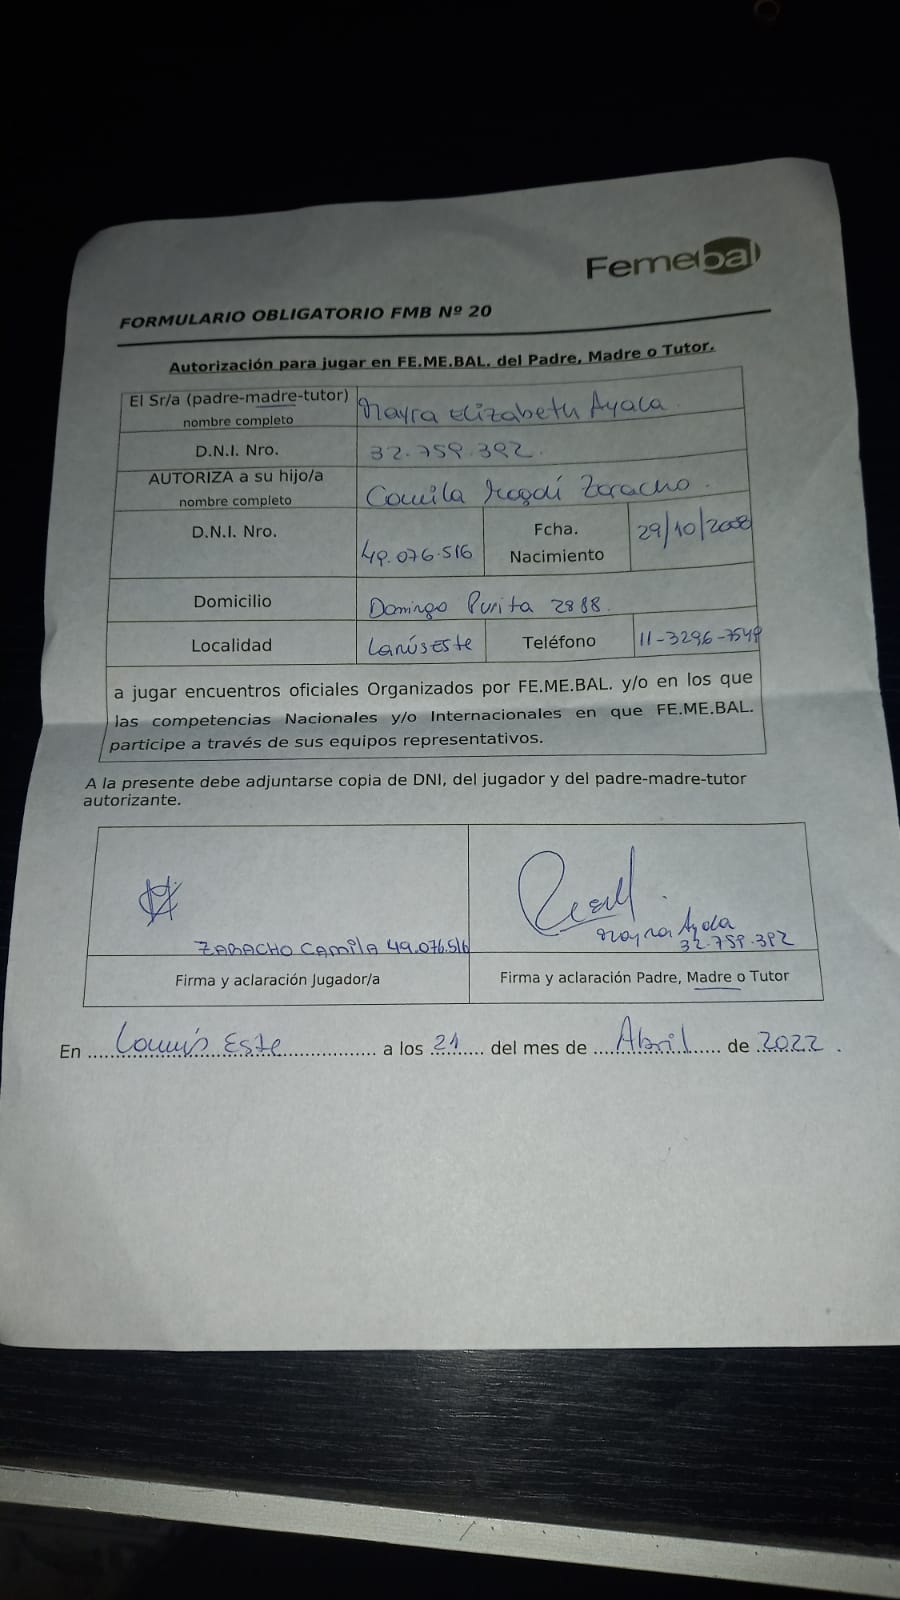 Femebal
FORMULARIO OBLIGATORIO FMB Nº 20
Autorización para jugar en FE.ME.BAL. del Padre, Madre o Tutor.
El Sr/a (padre-madre-tutor) nombre completo
Mayra Elizabeth Ayala
D.N.I. Nro.
32.759.392.
AUTORIZA a su hijo/a nombre completo
Camila Zaracho.
D.N.I. Nro.
49.076.516
Fcha. Nacimiento
29/10/2008
Domicilio
Domingo Purita 2888.
Localidad
Lanús Este
Teléfono
11-3296-7549
a jugar encuentros oficiales Organizados por FE.ME.BAL. y/o en los que
las competencias Nacionales y/o Internacionales en que FE.ME.BAL.
participe a través de sus equipos representativos.
A la presente debe adjuntarse copia de DNI, del jugador y del padre-madre-tutor
autorizante.
ZARACHO CAMILA 49.076.516
Firma y aclaración Jugador/a
Mayra Ayala
32.759.392
Firma y aclaración Padre, Madre o Tutor
En Lanús Este a los 21 del mes de Abril de 2022.